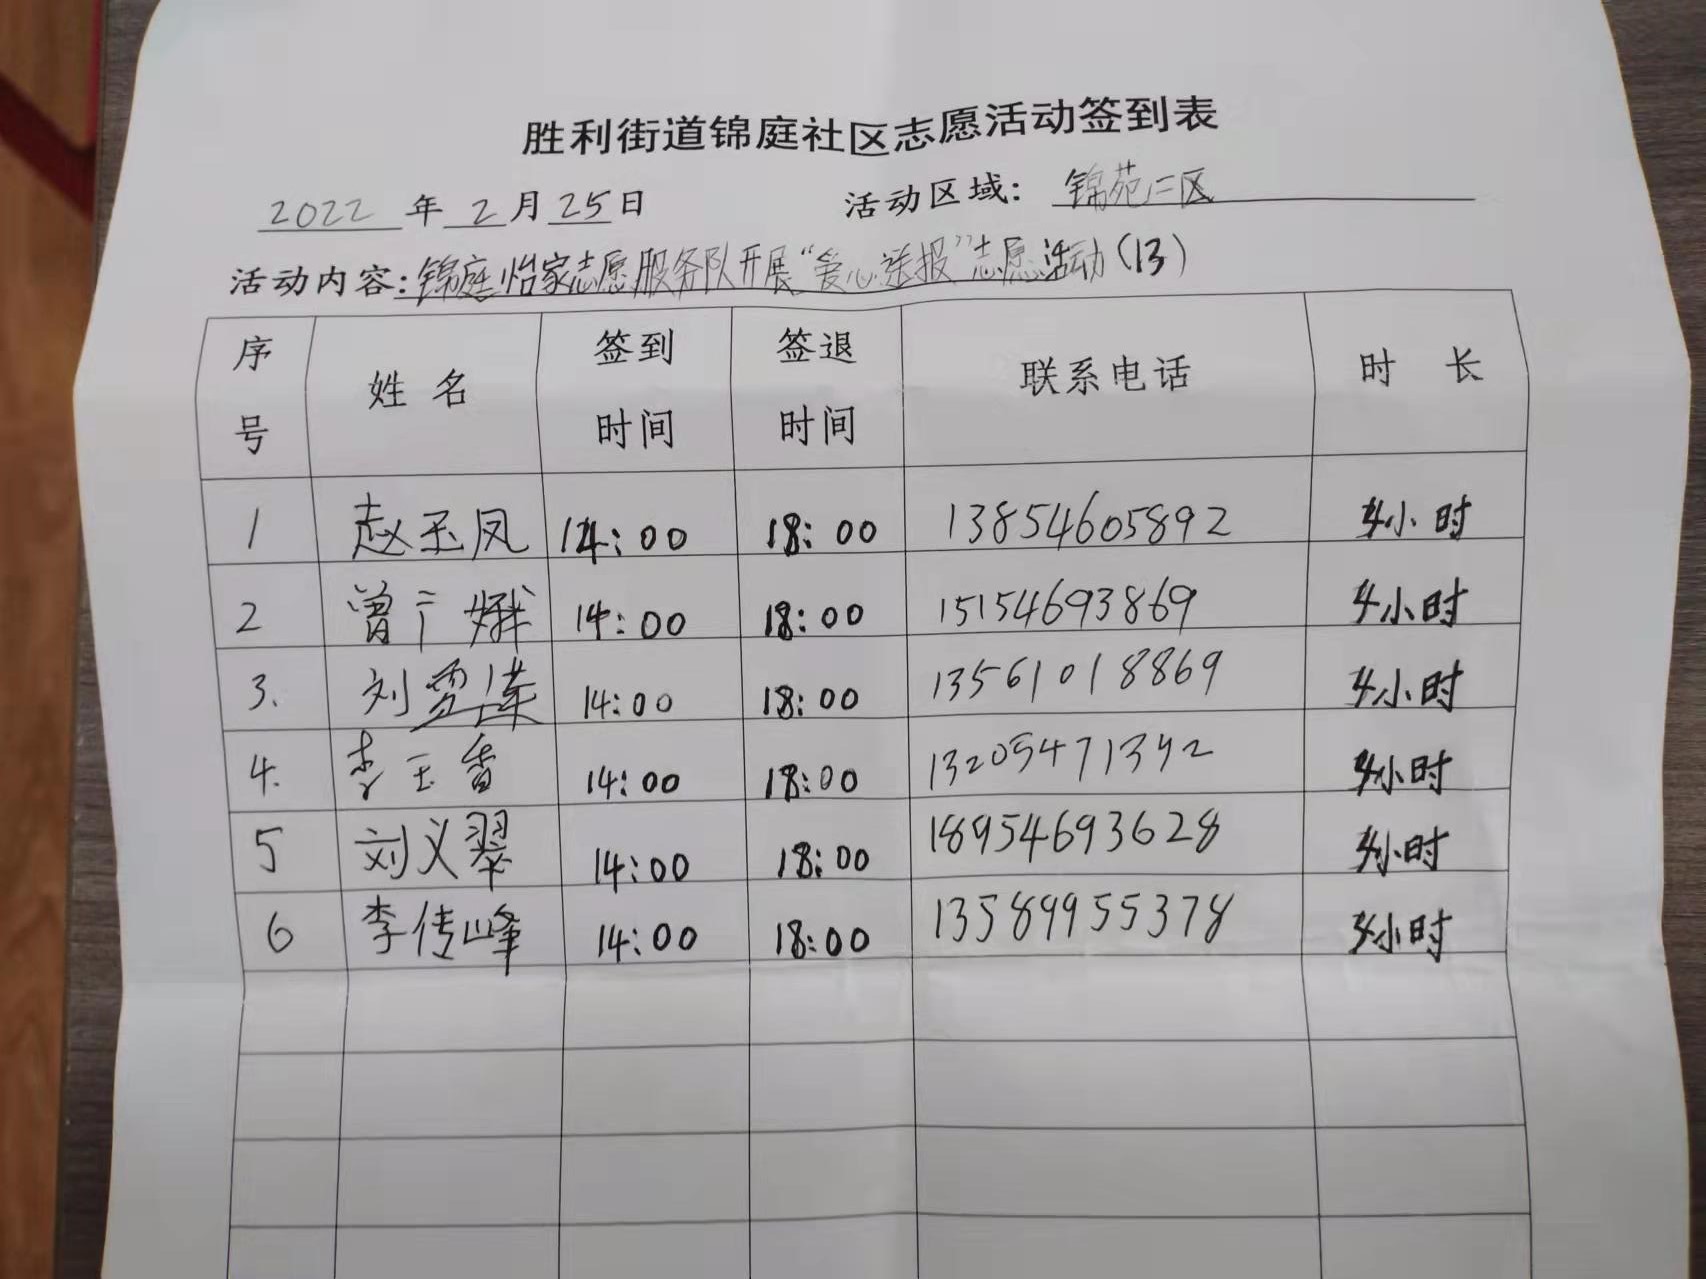 胜利街道锦庭社区志愿活动签到表
2022 年 2 月 25 日 活动区域: 锦苑二区
活动内容: 锦庭怡家志愿服务队开展“爱心送报”志愿活动(13)
序号 姓名 签到时间 签退时间 联系电话 时长
1 赵玉凤 14:00 18:00 13854605892 4小时
2 曾广娥 14:00 18:00 15154693869 4小时
3. 刘雪莲 14:00 18:00 13561018869 4小时
4. 李玉香 14:00 18:00 13205471392 4小时
5 刘义翠 14:00 18:00 18954693628 4小时
6 李传峰 14:00 18:00 13589955378 4小时